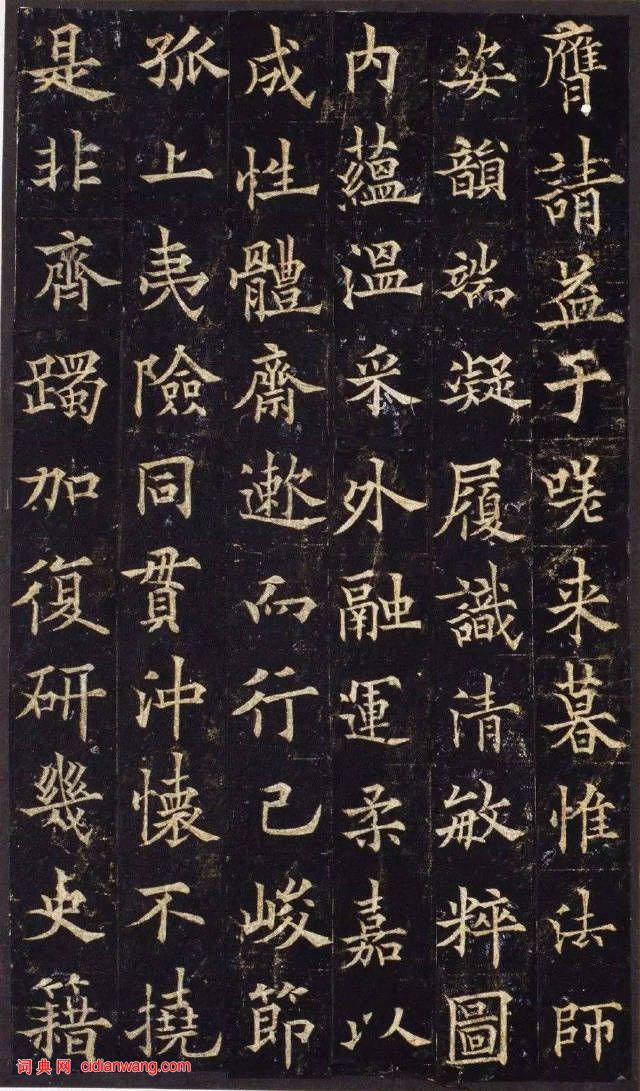 膺請益于嗟来暮惟法師
姿韻端凝履識清敏粹圖
内蘊溫采外融運柔嘉以
成性體齋遬而行己峻節
孤上夷險同貫沖懷不撓
是非齊躅加復研幾史籍
词典网 cidianwang.com